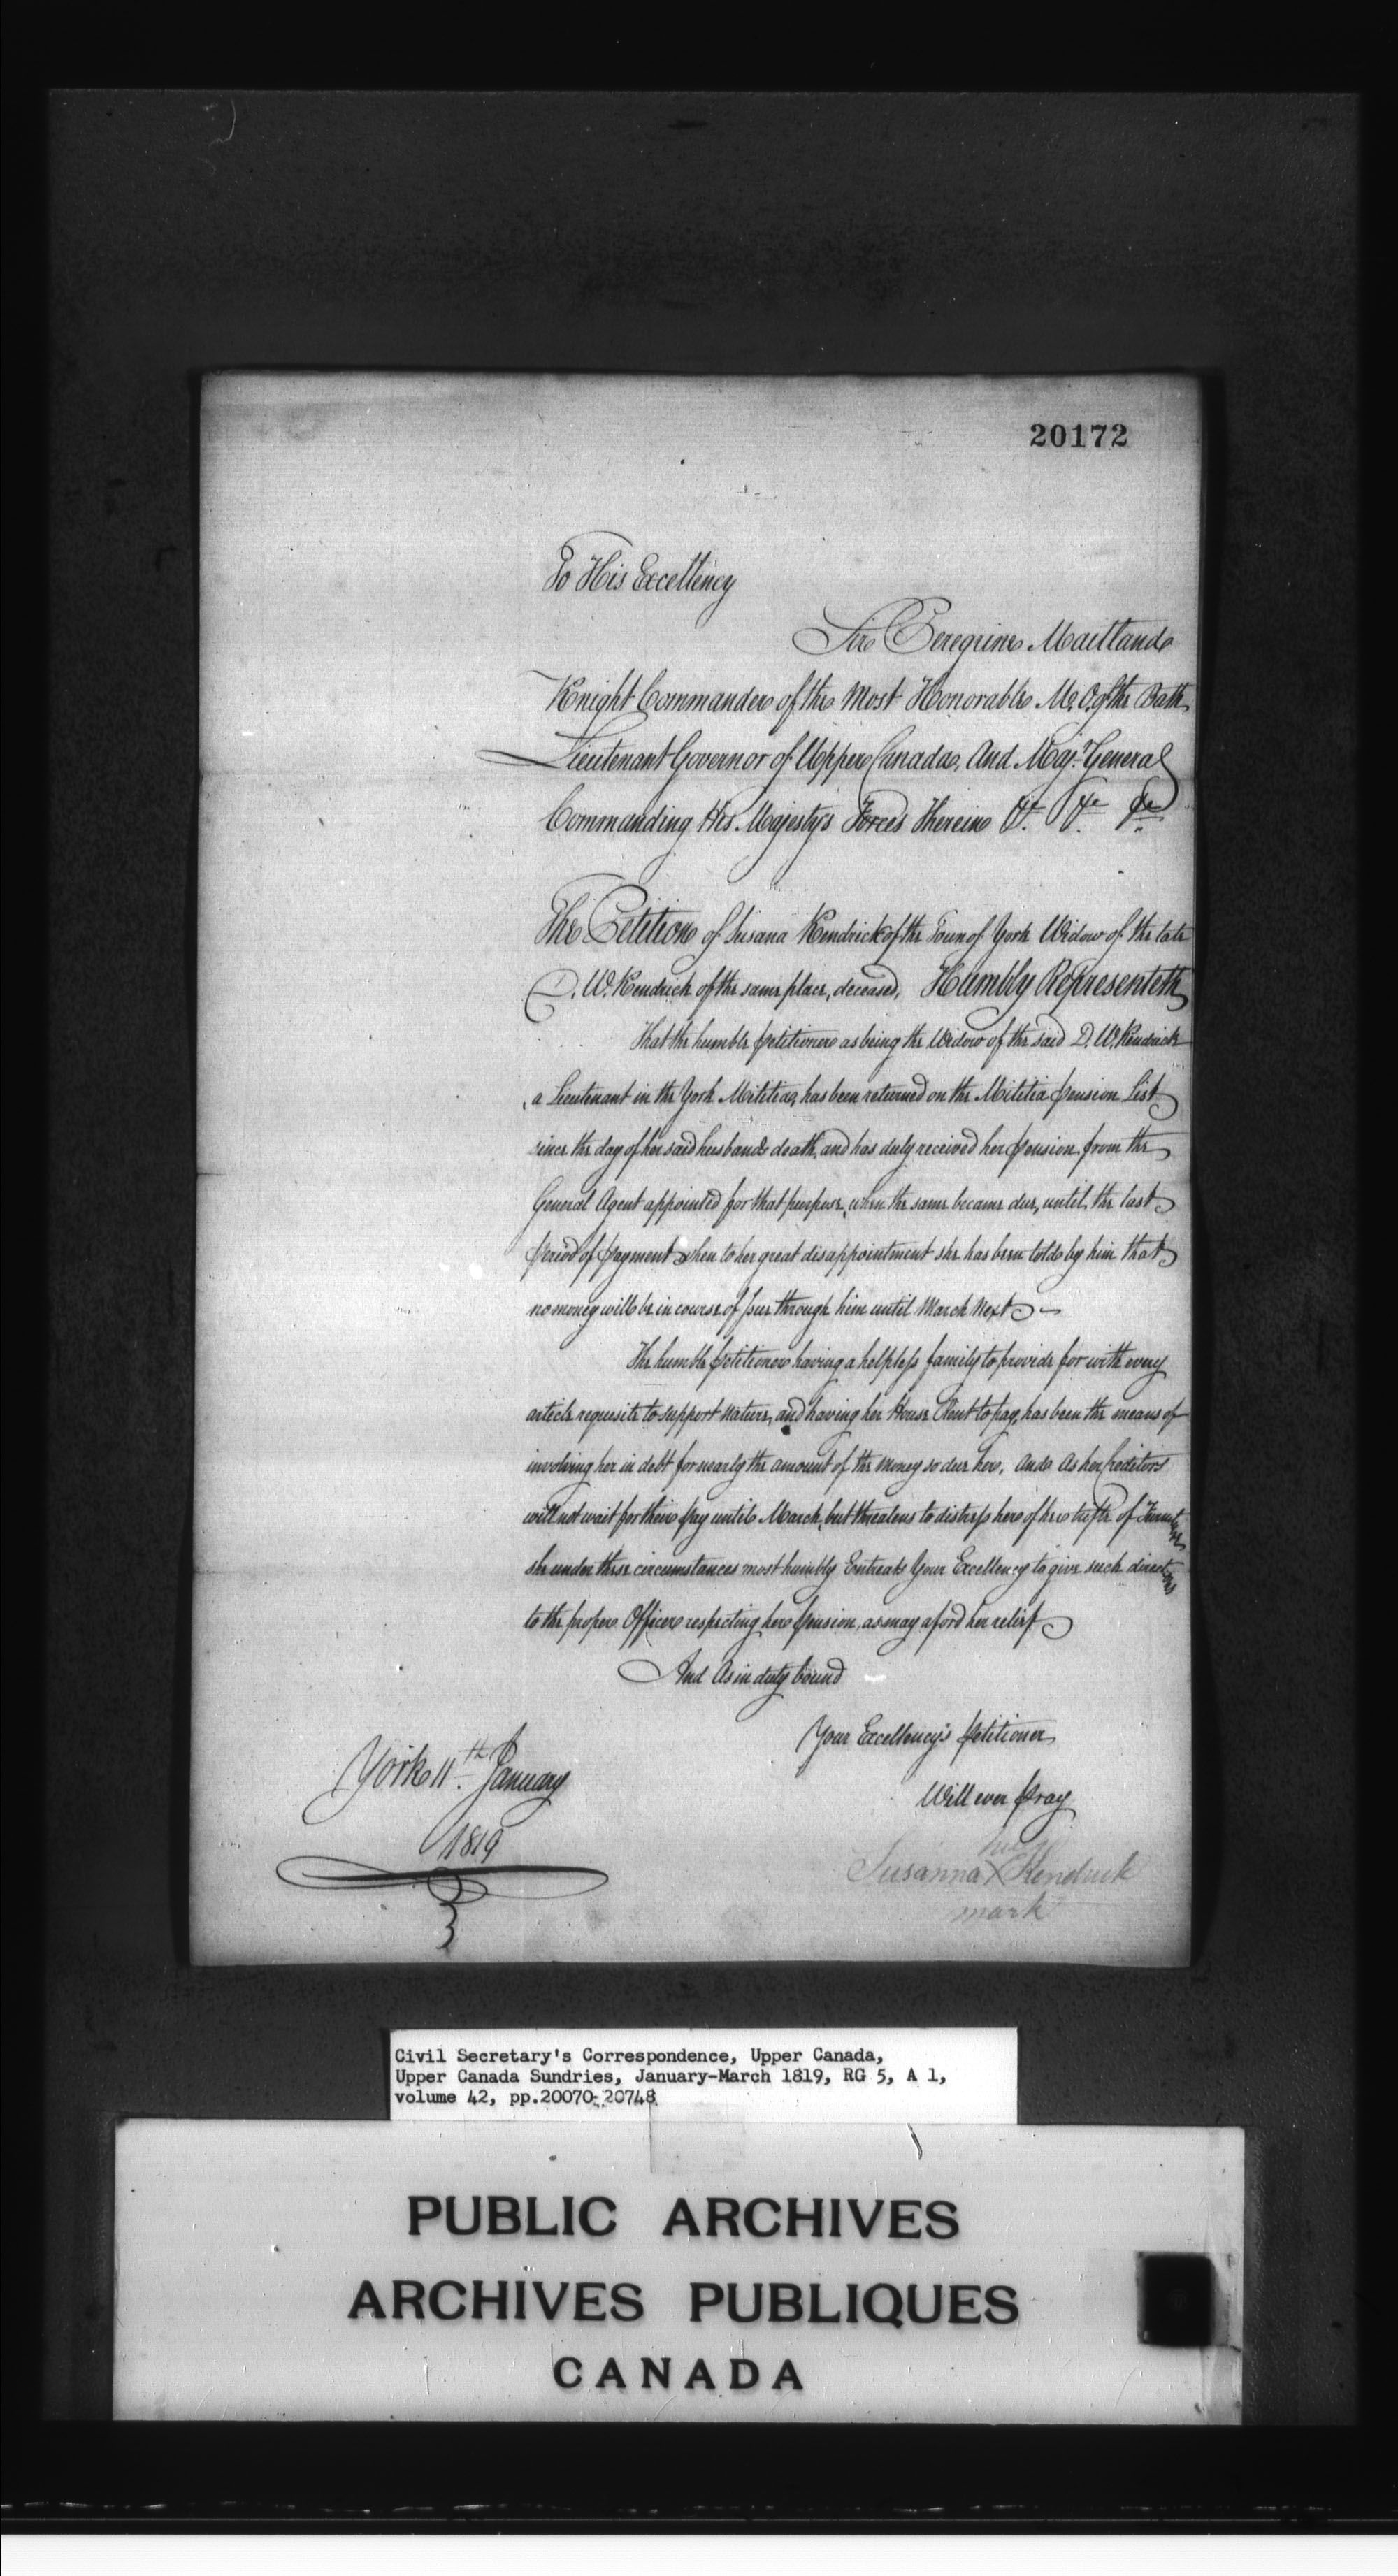 20172
To His Excellency
Sir Peregrine Maitland
Knight Commander of the Most Honorable M. O. of the Bath,
Lieutenant Governor of Upper Canada, And Majr. General
Commanding His Majesty's Forces Therein &c. &c. &c.
The Petition of Susana Kendrick of the Town of York Widow of the late
D. W. Kendrick of the same place, deceased, Humbly Representeth,
That the humble petitioner as being the Widow of the said D. W. Kendrick
a Lieutenant in the York Militia, has been returned on the Militia pension List
since the day of her said husbands death, and has duly received her pension from the
General Agent appointed for that purpose, when the same became due, until the last
period of payment when to her great disappointment she has been told by him that
no money will be in course of through him until March Next
The humble petitioner having a helpless family to provide for with every
article requisite to support nature, and having her House Rent to pay, has been the means of
involving her in debt for nearly the amount of the Money so due her, And As her Creditors
will not wait for their pay until March, but threatens to distress her of her of Furniture
she under these circumstances most humbly Entreats Your Excellency to give such directions
to the proper Officer respecting her pension, as may aford her relief
And As in duty bound
Your Excellency's petitioner
Will ever pray
York 11th. January
1819
her
Susanna X Kendrick
mark
Civil Secretary's Correspondence, Upper Canada,
Upper Canada Sundries, January-March 1819, RG 5, A 1,
volume 42, pp.20070-20748
PUBLIC ARCHIVES
ARCHIVES PUBLIQUES
CANADA